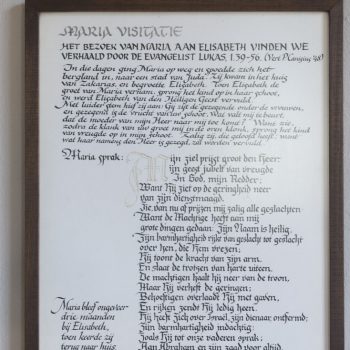 MARIA VISITATIE
HET BEZOEK VAN MARIA AAN ELISABETH VINDEN WE
VERHAALD DOOR DE EVANGELIST LUKAS, 1.39-56.
In die dagen ging Maria op weg en spoedde zich het
bergland in, naar een stad van Juda. Zij kwam in het huis
van Zakarias, en begroette Elisabeth. Toen Elisabeth de
groet van Maria vernam, sprong het kind op in haar schoot,
en werd Elisabeth van den Heiligen Geest vervuld.
Met luider stem riep zij aan: Gij zijt de gezegende onder de vrouwen,
en gezegend is de Vrucht van uw schoot. Wat valt mij te beurt,
dat de moeder van mijn Heer naar mij toe komt? Want zie,
zodra de klank van uw groet mij in de oren klonk, sprong het kind
van vreugde op in mijn schoot. Zalig zij die gelooft heeft, want
wat haar namens den Heer is gezegd, zal worden vervuld.
Maria sprak: Mijn ziel prijst groot den Heer:
mijn geest jubelt van vreugde
In God, mijn Redder;
Want Hij ziet op de geringheid neer
van zijn dienstmaagd.
Zie, van nu af prijzen mij zalig alle geslachten
Want de Machtige heeft aan mij
grote dingen gedaan: Zijn Naam is heilig.
Zijn barmhartigheid rijkt van geslacht tot geslacht
over hen, die Hem vrezen;
Hij toont de kracht van zijn arm,
En slaat de trotzen van harte uiteen.
De machtigen haalt hij neer van de troon,
Maar Hij verheft de geringen;
Behoeftigen overlaadt Hij met gaven,
En rijken zendt Hij ledig heen.
Hij heeft zich over Israel, zijn dienaar, ontfermd;
Zijn barmhartigheid indachtig:
Zoals Hij tot onze vaderen sprak:
Aan Abraham en zijn zaad voor altijd.
Maria bleef ongeveer
drie maanden
bij Elisabeth,
toen keerde zij
terug naar huis